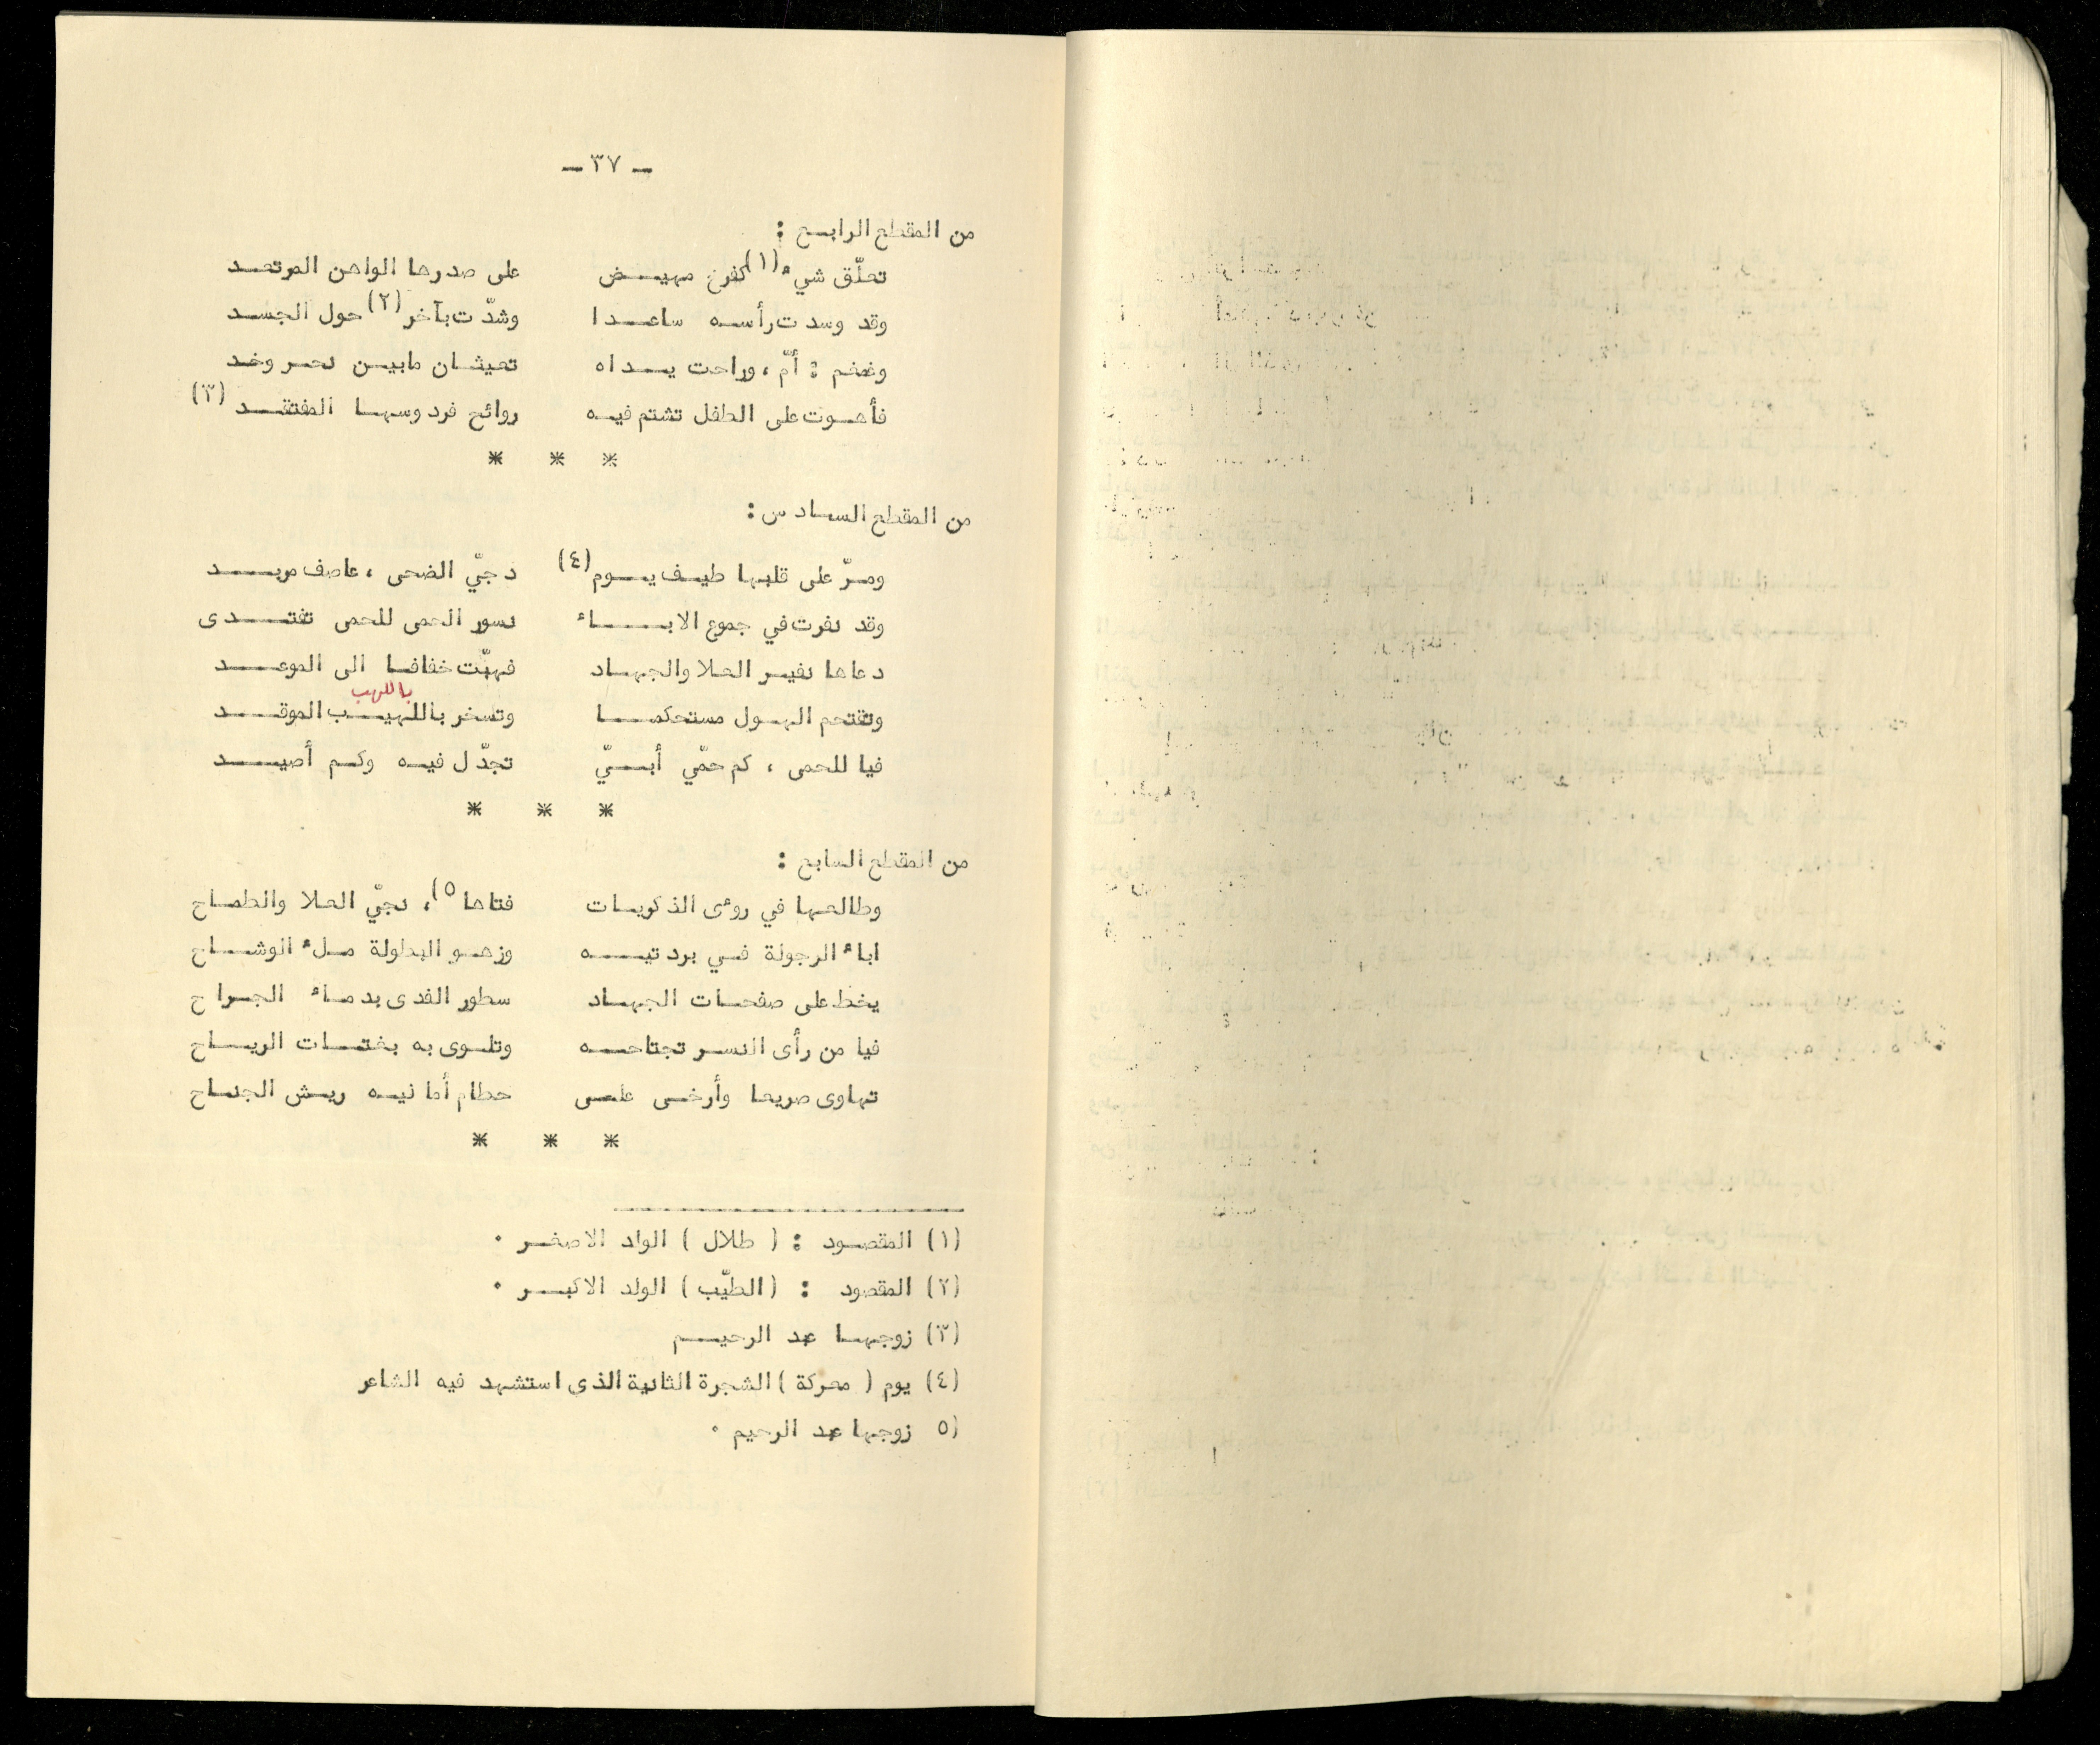 - ٣٧ -
من المقطع الرابع :
تعلّق شيء (١) كفرخ مهيض على صدرها الواهن المرتعد
وقد وسدت رأسه ساعدا وشدّت بآخر (٢) حول الجسد
وغمغم : أمّ ، وراحت يداه تعيثان مابين نحر وخد
فأهوت على الطفل تشتم فيه روائح فردوسها المفتقد (٣)
* * *
من المقطع السادس :
ومرّ على قلبها طيف يوم (٤) دجيّ الضحى ، عاصف مربد
وقد نفرت في جموع الاباء نسور الحمى للحمى تفتدى
دعاها نفير العلا والجهاد فهبّت خفافا الى الموعد
باللهب
وتقتحم الهول مستحكما وتسخر باللهيب الموقد
فيا للحمى ، كم حمّي أبيّ تجدّل فيه وكم أصيد
* * *
من المقطع السابع :
وطالعها في روءى الذكريات فتاها ٥) ، نجيّ العلا والطماح
اباء الرجولة في بردتيه وزهو البطولة ملء الوشاح
يخط على صفحات الجهاد سطور الفدى بدماء الجراح
فيا من رأى النسر تجتاحه وتلوى به بغتات الرياح
تهاوى صريعا وأرخى على حطام أمانيه ريش الجناح
* * *
(١) المقصود : ( طلال ) الولد الاصغر .
(٢) المقصود : (الطيّب) الولد الاكبر .
(٣) زوجها عبد الرحيم
(٤) يوم ( معركة ) الشجرة الثانية الذي استشهد فيه الشاعر
(٥ زوجها عبد الرحيم .